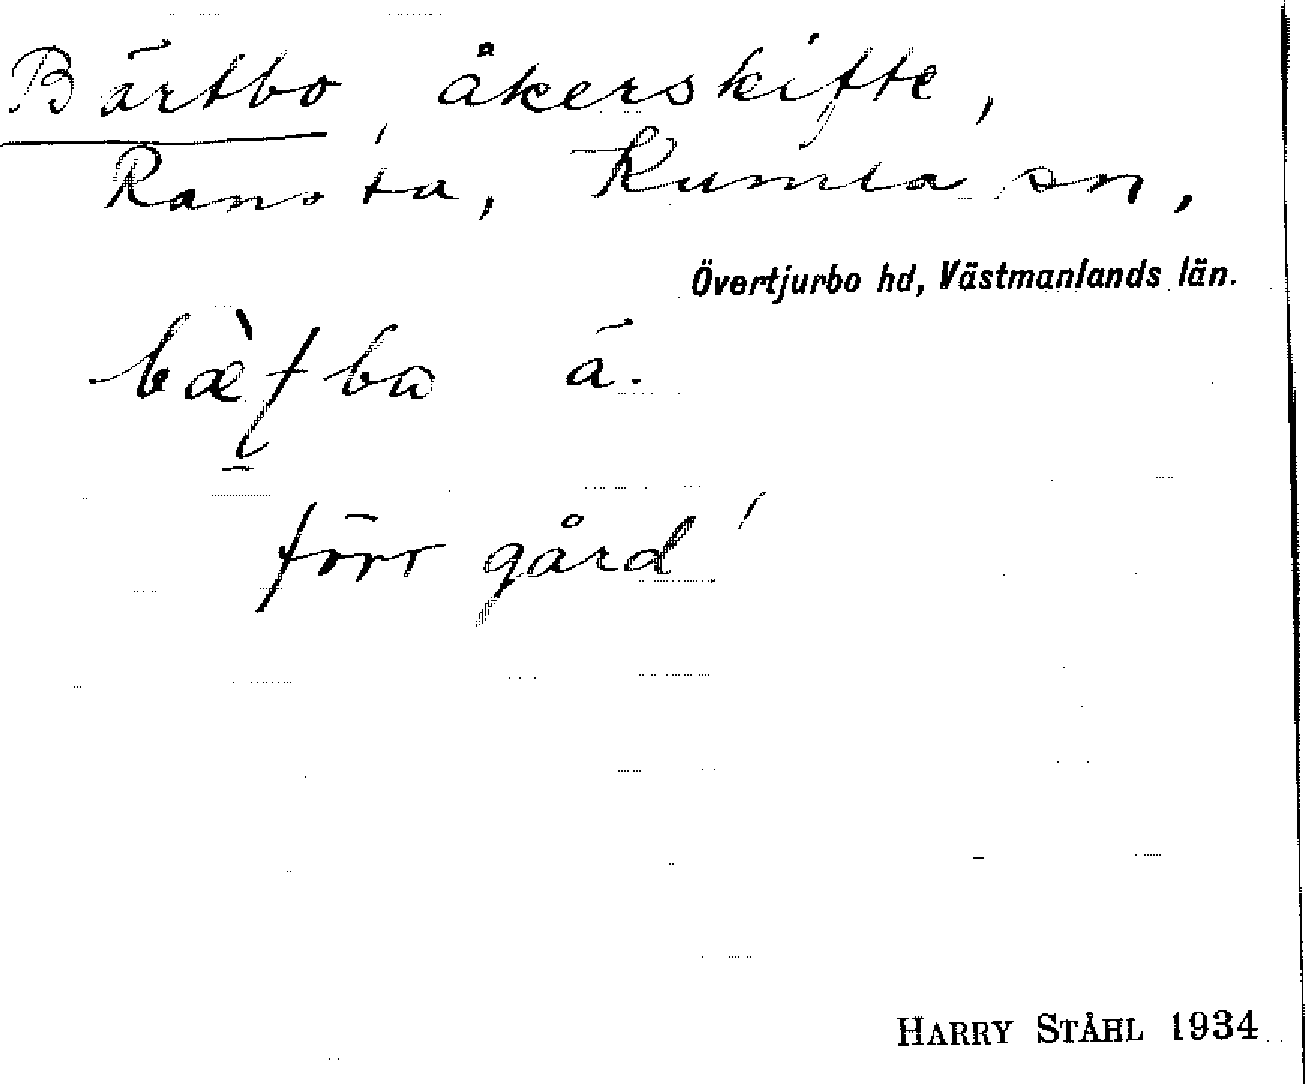 Bärtbo, åkerskifte,
Ransta, Kumla sn,
Övertjurbo hd, Västmanlands län.
ä.
förr gård
HARRY STÅHL 1934